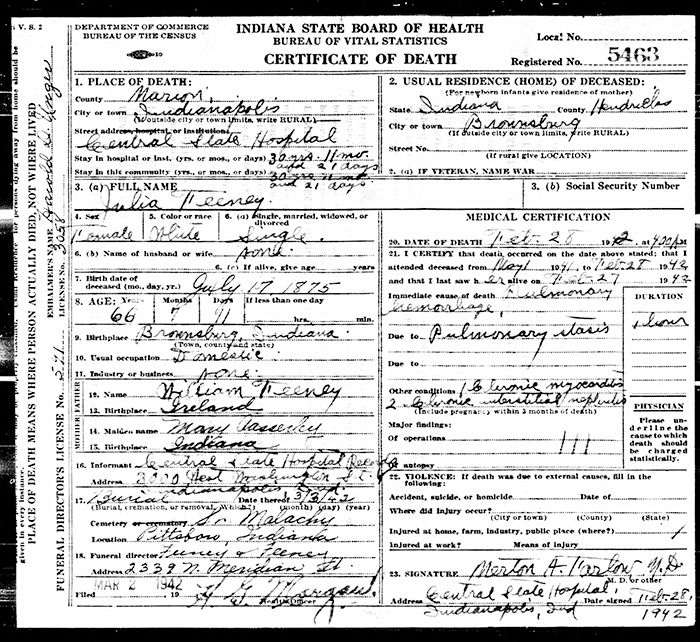 DEPARTMENT OF COMMERCE
BUREAU OF THE CENSUS
INDIANA STATE BOARD OF HEALTH
BUREAU OF VITAL STATISTICS
CERTIFICATE OF DEATH
Local No.
Registered No. 5463
1. PLACE OF DEATH:
County Marion
City or town Indianapolis
(If outside city or town limits, write RURAL)
Street address, hospital or institution:
Central State Hospital
Stay in hospital or inst. (yrs. or mos., or days) 30 yrs. 11 mo.
and 21 days
Stay in this community (yrs. or mos., or days) 30 yrs. 11 mo
and 21 days
2. USUAL RESIDENCE (HOME) OF DECEASED:
(For newborn infants give residence of mother)
State Indiana County Hendricks
City or town Brownsburg
(If outside city or town limits, write RURAL)
Street No.
(If rural give LOCATION)
2. (a) IF VETERAN, NAME WAR
3. (a) FULL NAME
Julia Feeney
3. (b) Social Security Number
4. Sex
Female
5. Color or race
White
6. (a) Single, married, widowed, or divorced
Single
6. (b) Name of husband or wife none
6. (c) If alive, give age years
7. Birth date of
deceased (mo., day, yr.) July 17 1875
8. AGE: Years Months Days If less than one day
66 7 11 hrs. min.
9. Birthplace Brownsburg, Indiana
(Town, county and state)
10. Usual occupation Domestic
11. Industry or business none
FATHER
12. Name William Feeney
13. Birthplace Ireland
MOTHER
14. Maiden name Mary
15. Birthplace Indiana
16. Informant Central State Hospital Records
Address 3000 West Washington St.
Indianapolis
17. Burial Date thereof 3/3/42
(Burial, cremation, or removal, Which?) (month) (day) (year)
Cemetery or crematory St Malachy
Location Pittsboro, Indiana
18. Funeral director Feeney & Feeney
Address 2339 N. Meridian St
MAR 2 1942
Filed 19 Morgan
Health Officer
MEDICAL CERTIFICATION
20. DATE OF DEATH Feb. 28 1942, at 4:00 P.M.
21. I CERTIFY that death occurred on the date above stated; that I
attended deceased from May 1941, to Feb-28 1942
and that I last saw her alive on Feb-27 1942
Immediate cause of death Pulmonary
hemorrhage,
DURATION
1 hour
Due to Pulmonary stasis
Due to
Other conditions 1 Chronic myocarditis
2 Chronic interstitial nephritis
(Include pregnancy within 3 months of death)
Major findings:
Of operations
Of autopsy
PHYSICIAN
Please underline the cause to which death should be charged statistically.
22. VIOLENCE: If death was due to external causes, fill in the
following:
Accident, suicide, or homicide Date of
Where did injury occur?
(City or town) (County) (State)
Injured at home, farm, industry, public place (where?)
Injured at work? Means of injury
23. SIGNATURE Merton A. Farlow M.D.
M. D. or other
Address Central State Hospital,
Indianapolis, Ind Date signed Feb-28,
1942
V. S. 2
given in every instance.
PLACE OF DEATH MEANS WHERE PERSON ACTUALLY DIED, NOT WHERE LIVED
FUNERAL DIRECTOR'S LICENSE No.
EMBALMER'S NAME Harold D.
LICENSE No. 3058